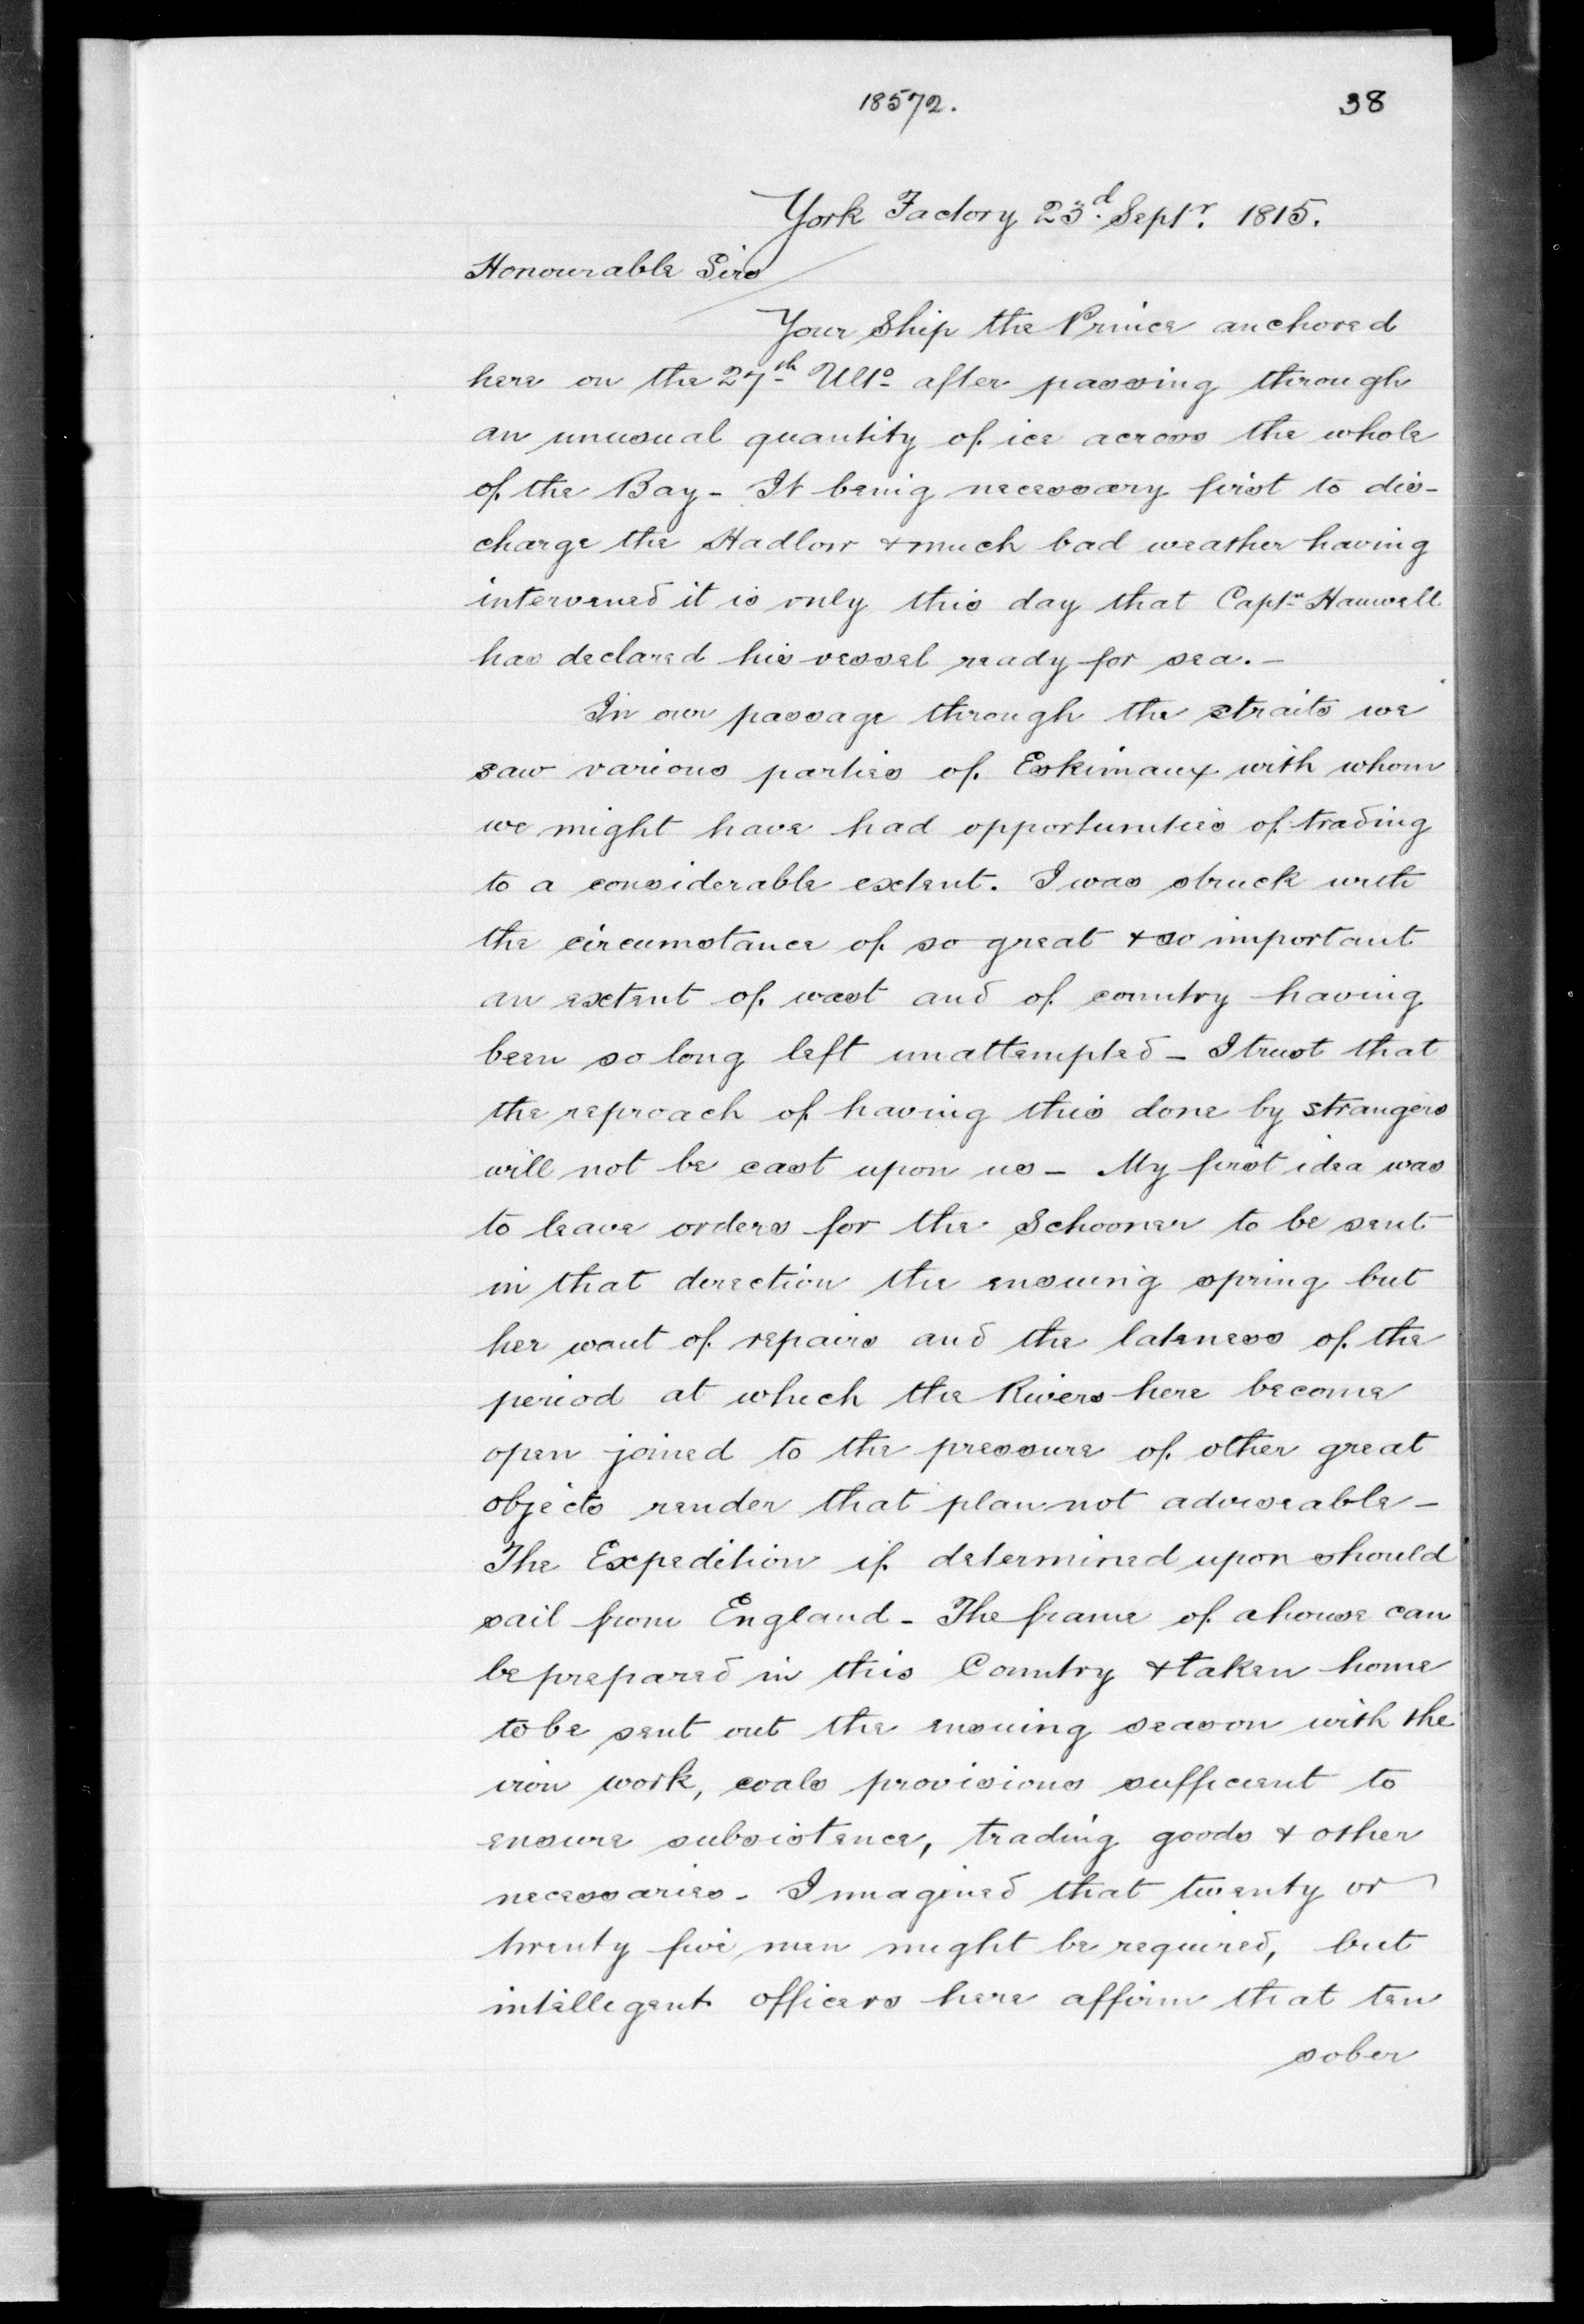 18572. 38
York Factory 23d. Septr. 1815.
Honourable Sirs
Your Ship the Prince anchored
here on the 27th Ulto after passing through
an unusual quantity of ice across the whole
of the Bay - It being necessary first to dis-
charge the Hadlow & much bad weather having
intervened it is only this day that Captn Hanwell
has declared his vessel ready for sea. -
In our passage through the straits we
saw various parties of Eskimaux with whom
we might have had opportunities of trading
to a considerable extent. I was struck with
the circumstance of so great & so important
an extent of coast and of country having
been so long left unattempted - I trust that
the reproach of having this done by strangers
will not be cast upon us - My first idea was
to leave orders for the Schooner to be sent
in that direction the ensuing spring but
her want of repairs and the lateness of the
period at which the Rivers here become
open joined to the pressure of other great
objects render that plan not adviseable -
The Expedition if determined upon should
sail from England - The frame of a house can
be prepared in this Country & taken home
to be sent out the ensuing season with the
iron work, coals provisions sufficient to
ensure subsistence, trading goods & other
necessaries - I imagined that twenty or
twenty five men might be required, but
intellegent officers here affirm that ten
sober